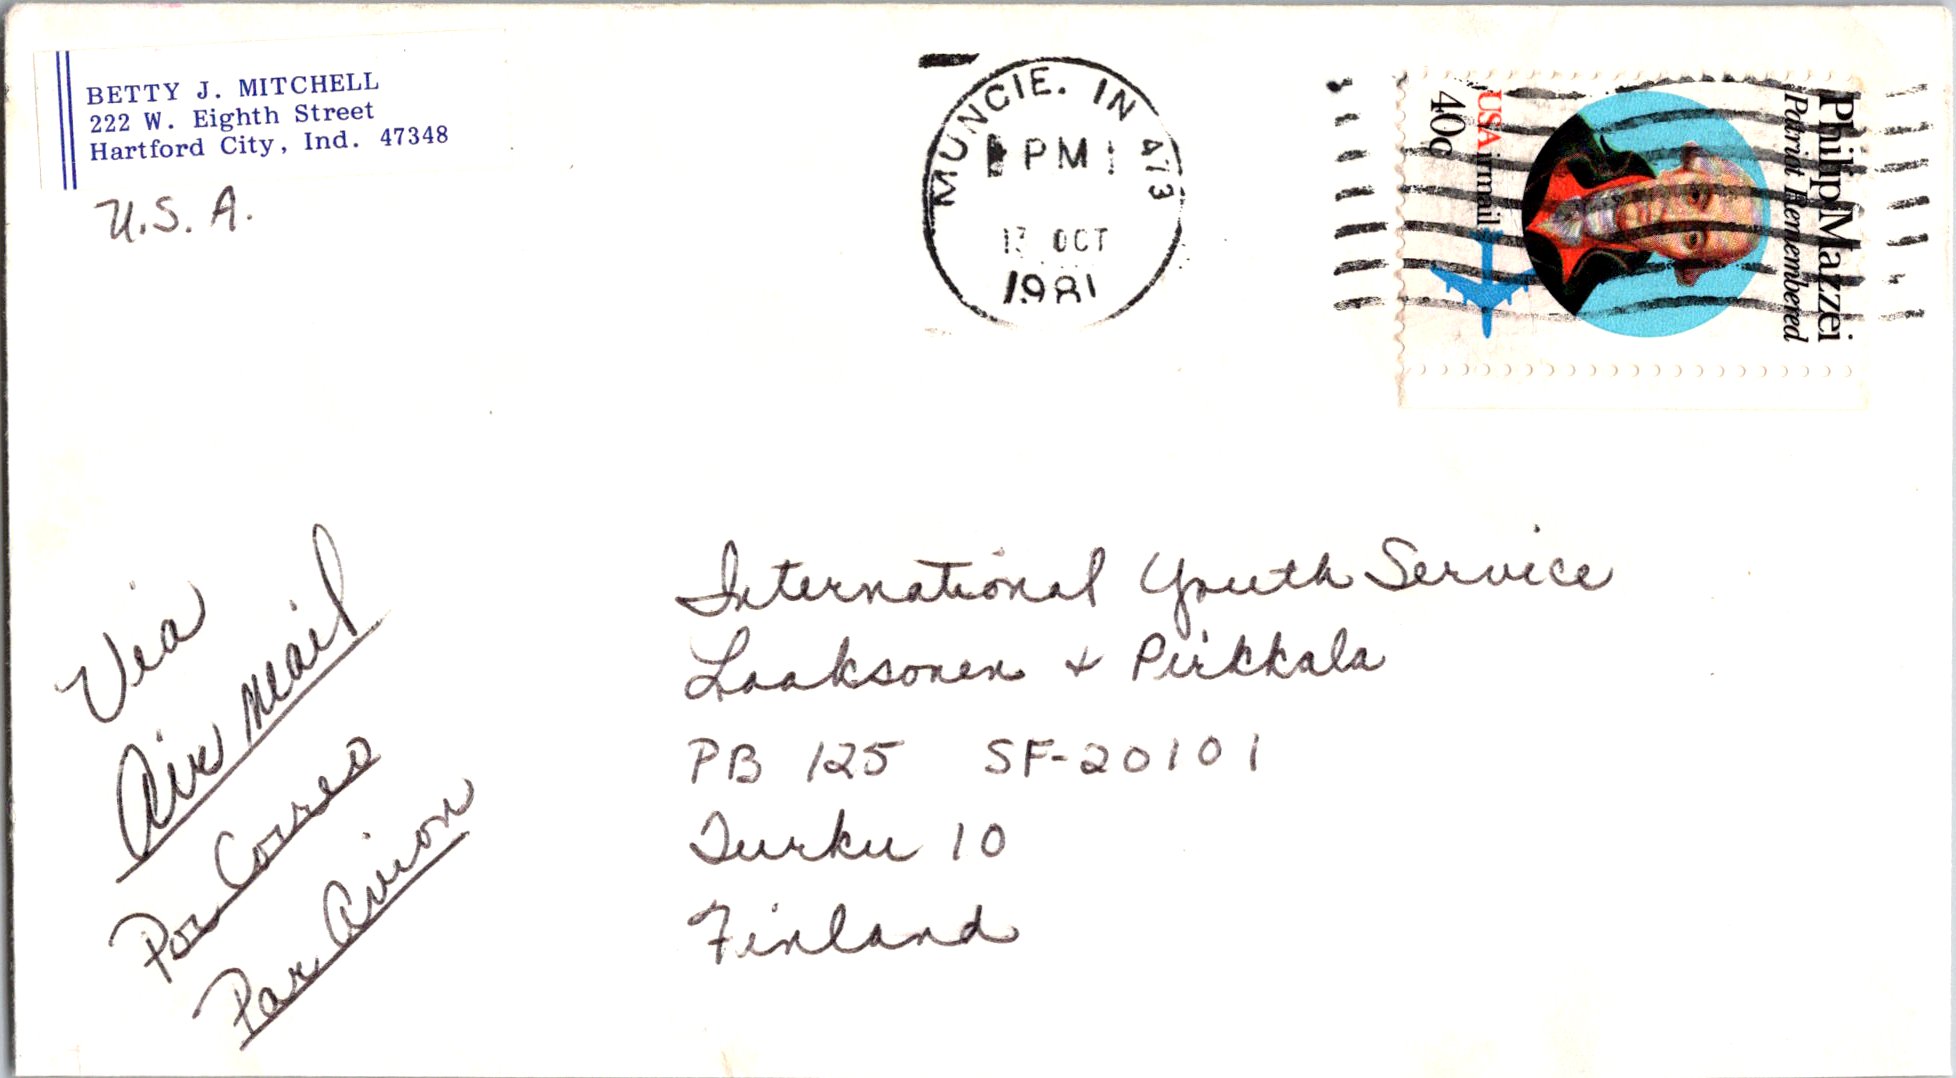 BETTY J. MITCHELL
222 W. Eighth Street
Hartford City, Ind. 47348
U.S.A.
MUNCIE. IN 473
PM
OCT
1981
Philip Mazzei
Patriot Remembered
USAirmail
40c
Via
Air Mail
Por Correo
Par Avion
International Youth Service
Laaksonen + Pirkkala
PB 125 SF-20101
Turku 10
Finland